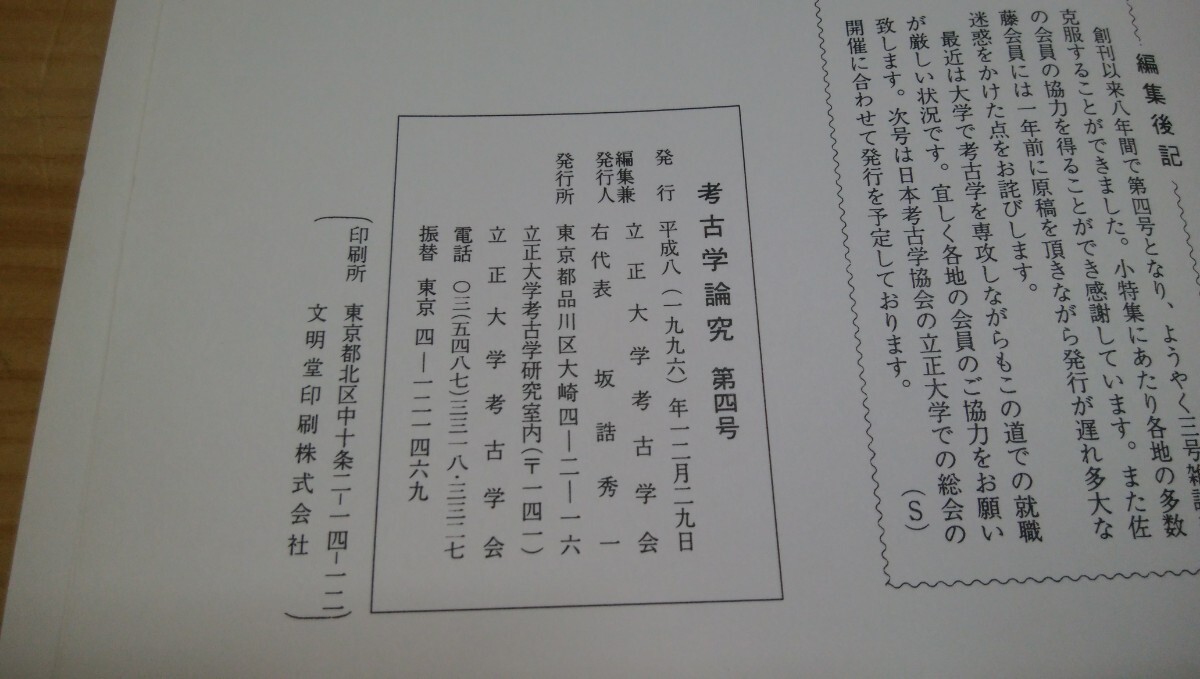 編集後記
創刊以来八年間で第四号となり、ようやく三号雑誌
克服することができました。小特集にあたり各地の多数
の会員の協力を得ることができ感謝しています。また佐
藤会員には一年前に原稿を頂きながら発行が遅れ多大な
迷惑をかけた点をお詫びします。
最近は大学で考古学を専攻しながらもこの道での就職
が厳しい状況です。宜しく各地の会員のご協力をお願い
致します。次号は日本考古学協会の立正大学での総会の
開催に合わせて発行を予定しております。
(S)
考古学論究 第四号
発行 平成八(一九九六)年一二月二九日
編集兼
発行人
立正大学考古学会
右代表 坂誥秀一
発行所 東京都品川区大崎四―二―一六
立正大学考古学研究室内(〒一四一)
立正大学考古学会
電話 〇三(五四八七)三三一八・三三二七
振替 東京 四―一二一四六九
(印刷所 東京都北区中十条二―一四―一二
文明堂印刷株式会社)